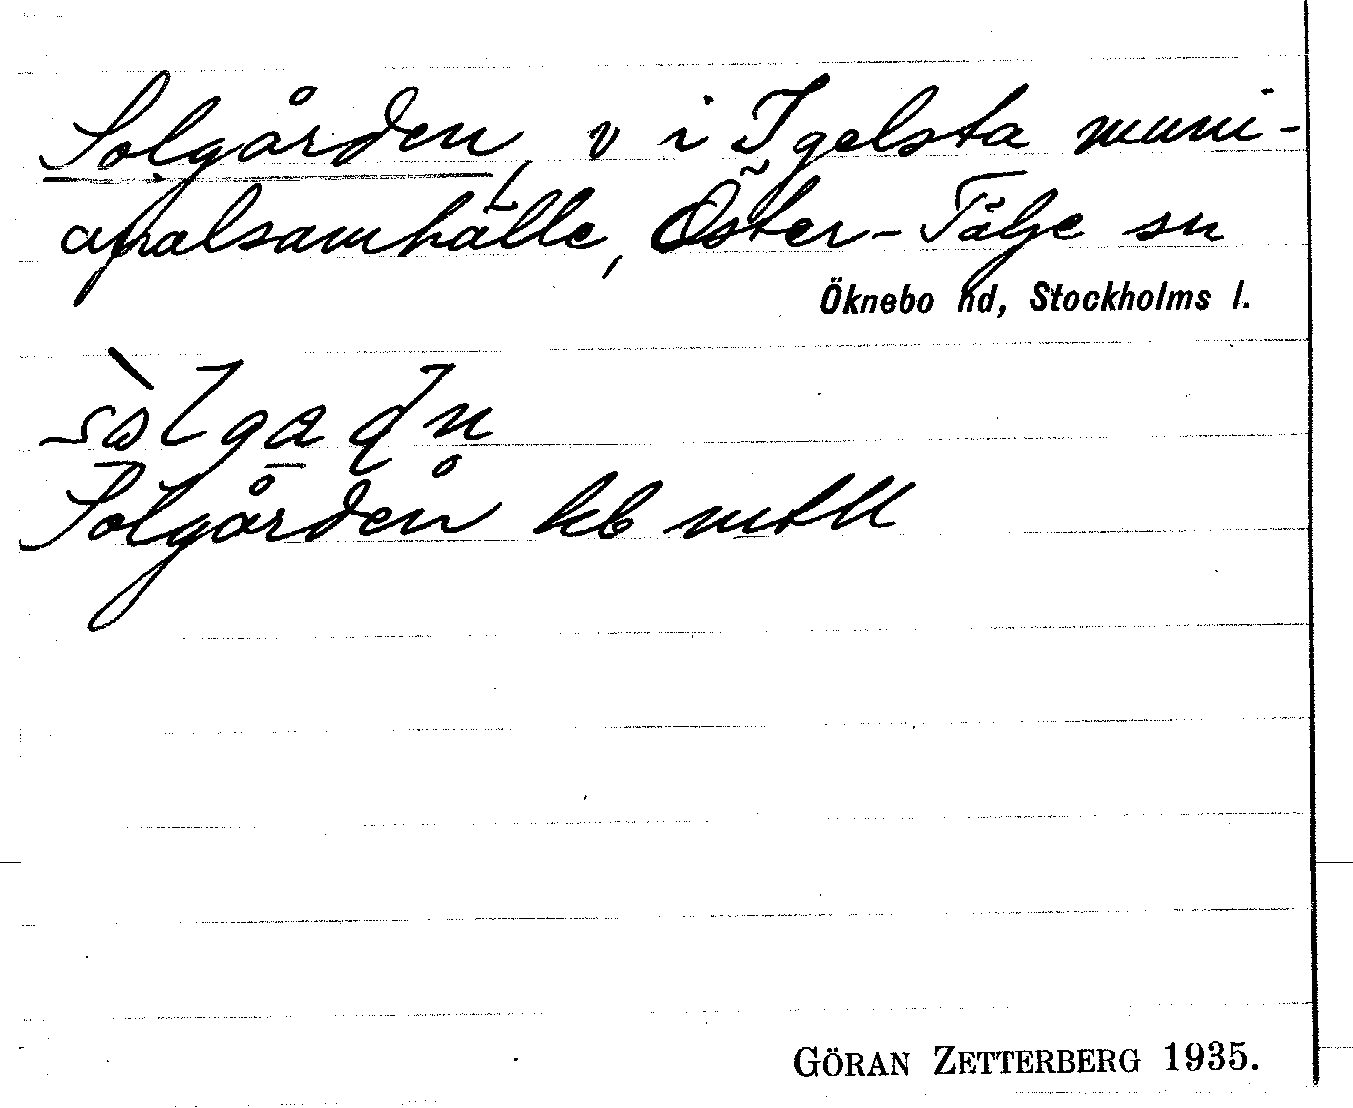 Solgården, v i Igelsta muni-
cipalsamhälle, Öster-Tälje sn
Öknebo hd, Stockholms l.
Solgården kb
GÖRAN ZETTERBERG 1935.